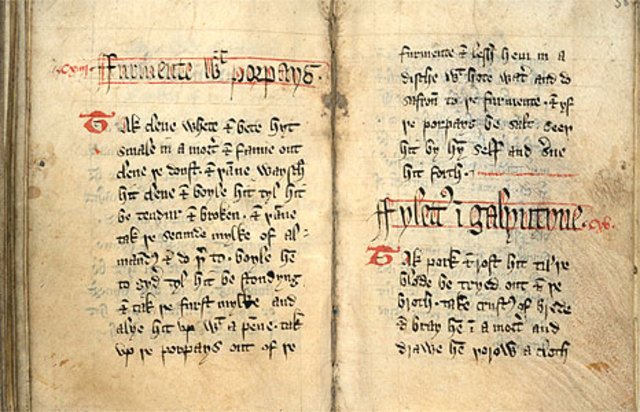 cxvi. Furmente wt porpays.
Tak clene whete & bete hyt
smale in a mort' & fanne out
clene þe doust. & þane waysch
hit clene & boyle hit tyl hit
be tendur & broken. & þane
tak þe secunde mylke of al-
mandȝ & do þ' to. boyle hē
to gyd' tyl hit be stondyng
& tak þe furst mylke and
alye hit vp wt a pēne. tak
vp þe porpays out of þe
furmente & lesh hem in a
dische wt hote wat' and do
safron to þe furmente. & yf
þe porpays be salt. seeþ
hit by hȳ self and s'ue
hit forth.
Fylett' ī galyntyne.
Tak pork & rost hit til þe
blode be tryed out & þe
broth. take crust' of brede
& bray hē ī a mort' and
drawe hē þorow a cloth